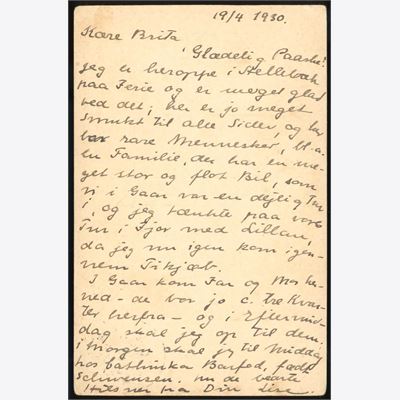 19/4 1930.
Kære Brita
Glædelig Paaske!
jeg er heroppe i Hellebæk
paa Ferie og er meget glad
ved det; her er jo meget
smukt til alle Sider, og her
bor rare Mennesker, bl.a.
en Familie, der har en me-
get stor og flot Bil, som
vi i Gaar var en dejlig Tur
i, og jeg tænkte paa vore
Tur i Fjor med Lillan,
da jeg nu igen kom igen-
nem Tikjøb.
I Gaar kom Far og Mor her-
ned - de bor jo c. tre Kvar-
ter herfra - og i Eftermid-
dag skal jeg op til dem;
i Morgen skal jeg til Middag
hos Barfod, født
Schwensen. de bedste
Hilsner fra Din Lise.